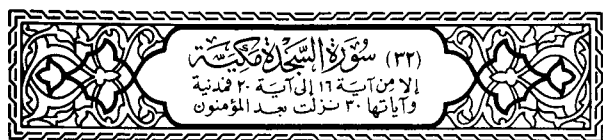 (٣٢) سُورَةُ السَّجْدَةِ مَكِيَّة
إلا من آية ١٦ إلى آية ٢٠ فمدنية
وآياتها ٣٠ نزلت بعد المؤمنون